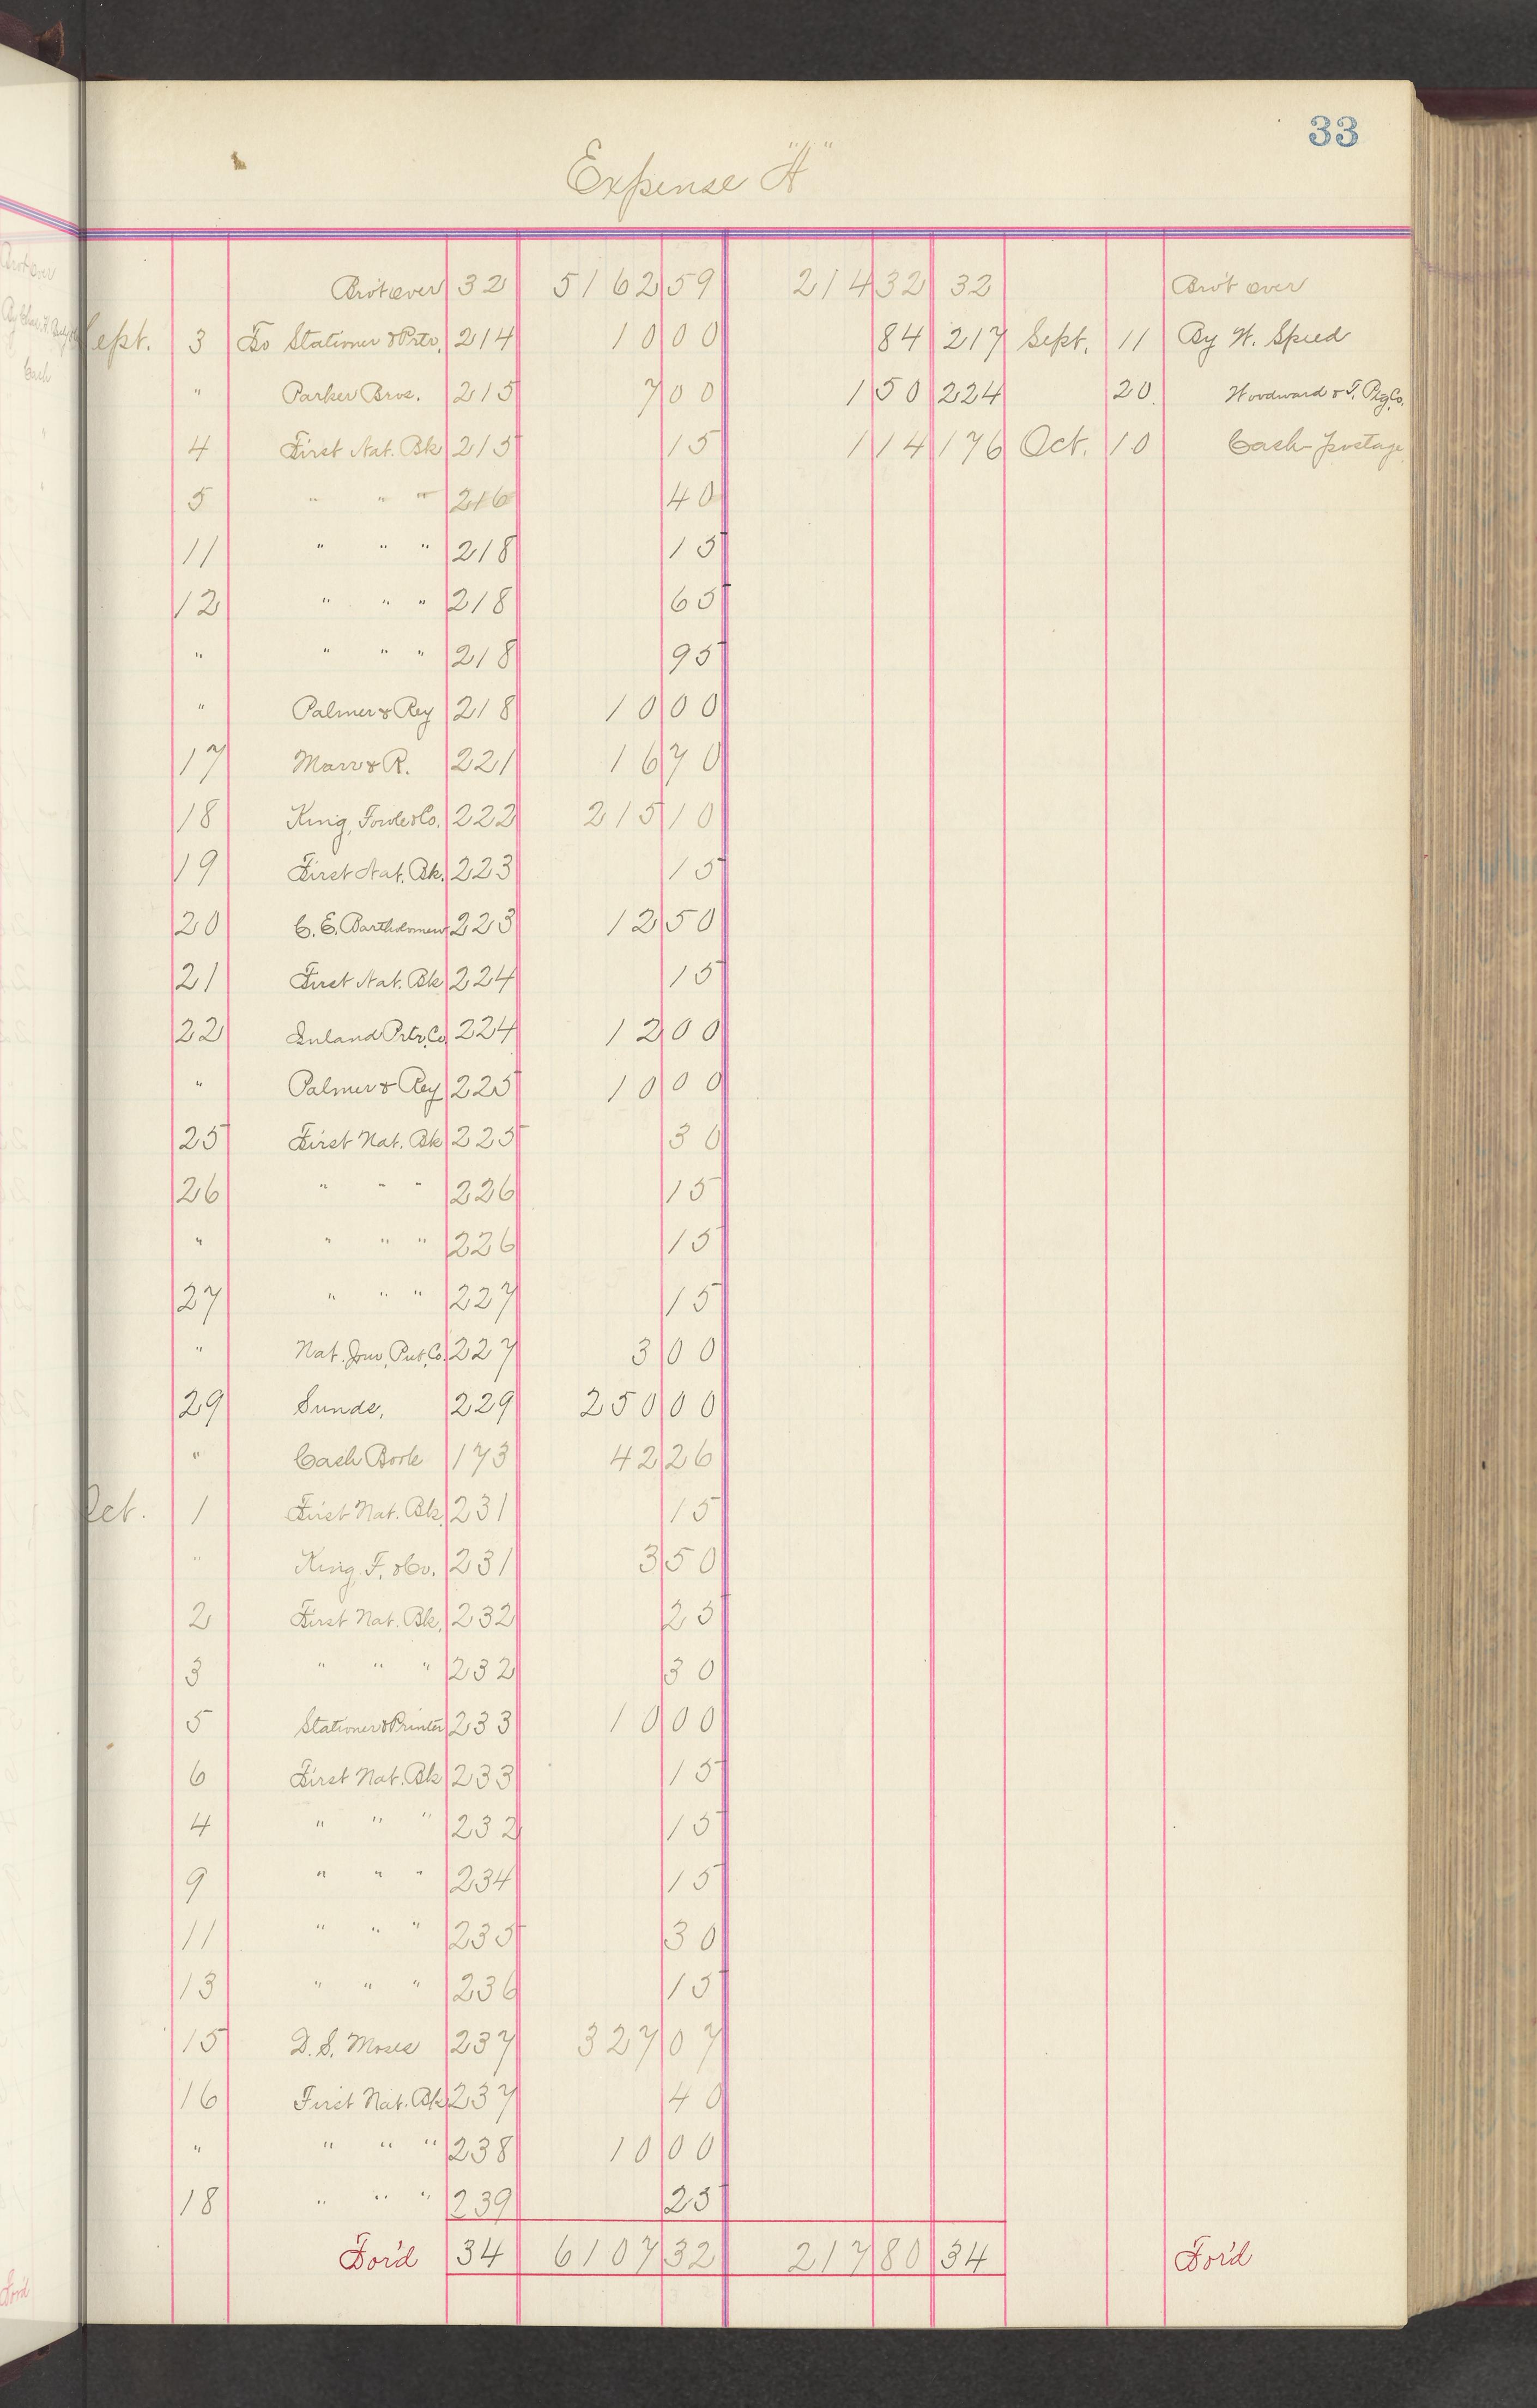 33
Expense "A"
Bro't over 32 5162 59 214 32 32 Bro't over
Sept. 3 To Stationer & Prtr. 214 10 00 84 217 Sept. 11 By W. Speed
" Parker Bros. 215 7 00 1 50 224 20 Woodward & T. Ptg Co.
4 First Nat. Bk 215 15 1 14 176 Oct. 10 Cash postage
5 " " " 216 40
11 " " " 218 15
12 " " " 218 65
" " " " 218 95
" Palmer & Rey 218 10 00
17 Marr & R. 221 16 70
18 King, Fowle & Co. 222 215 10
19 First Nat. Bk. 223 15
20 C. E. Bartholomew 223 12 50
21 First Nat. Bk 224 15
22 Inland Prtr. Co 224 12 00
" Palmer & Rey 225 10 00
25 First Nat. Bk 225 30
26 " " " 226 15
" " " " 226 15
27 " " " 227 15
" Nat. Jour. Pub. Co. 227 3 00
29 Sunds. 229 250 00
" Cash Book 173 42 26
Oct. 1 First Nat. Bk. 231 15
" King, F. & Co. 231 3 50
2 First Nat. Bk. 232 25
3 " " " 232 30
5 Stationer & Printer 233 10 00
6 First Nat. Bk 233 15
4 " " " 232 15
9 " " " 234 15
11 " " " 235 30
13 " " " 236 15
15 D. S. Moses 237 327 07
16 First Nat. Bk 237 40
" " " " 238 10 00
18 " " " 239 25
For'd 34 6107 32 217 80 34 For'd